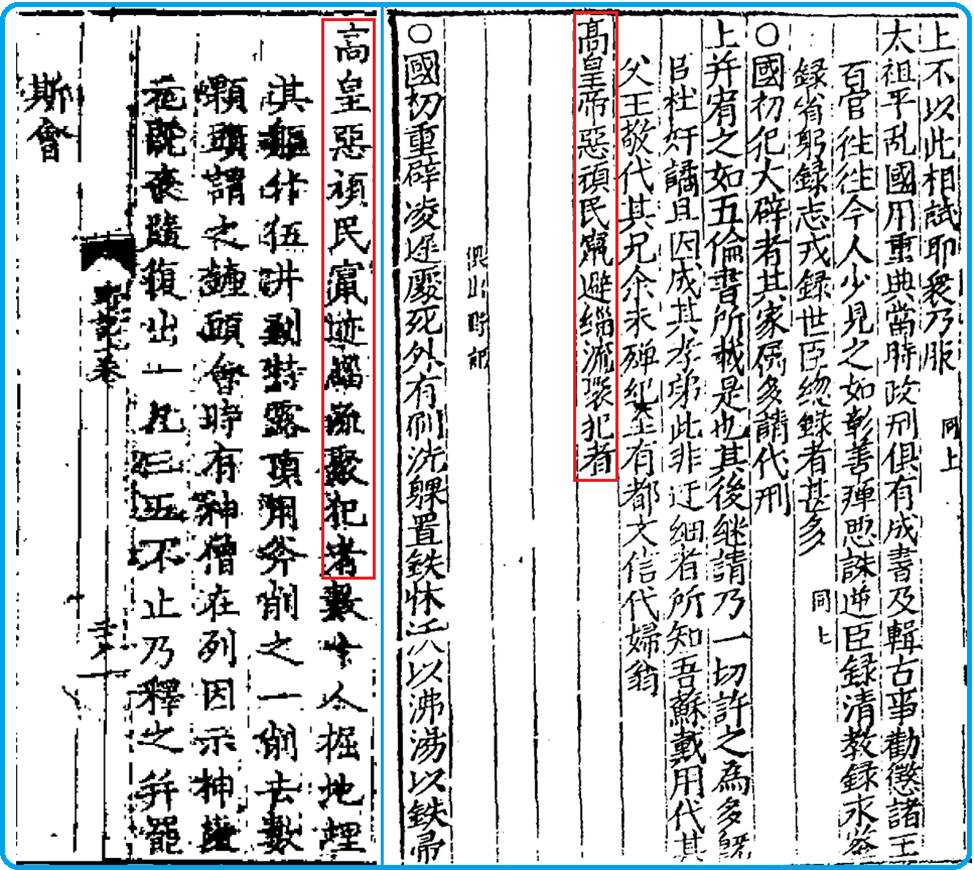 上不以此相試耶衆乃服 同上
太祖平乱國用重典當時政刑俱有成書及輯古事勸懲諸王
百官徃徃今人少見之如彰善癉惡誅逆臣録清教録永鑒
録省躬録志戒録世臣緫録者甚多 同上
〇國初犯大辟者其家属多請代刑
上并宥之如五倫書所載是也其後継請乃一切許之為多
杜奸譎且因成其孝弟此非迂細者所知吾蘇戴用代其
父王敬代其兄余未殫紀至有都文信代婦翁
髙皇帝惡頑民竄避緇流聚犯者
〇國初重辟凌遲處死外有刷洗躶置鉄牀沃以沸湯以鉄帚
高皇惡頑民竄迹緇流聚犯者數十人掘地埋
其軀什伍并列特露頂用斧削之一削去數
顆頭謂之鏟頭會時有神僧在列因示神變
元旣喪隨復出一凡三五不止乃釋之并罷
野記卷
斯會